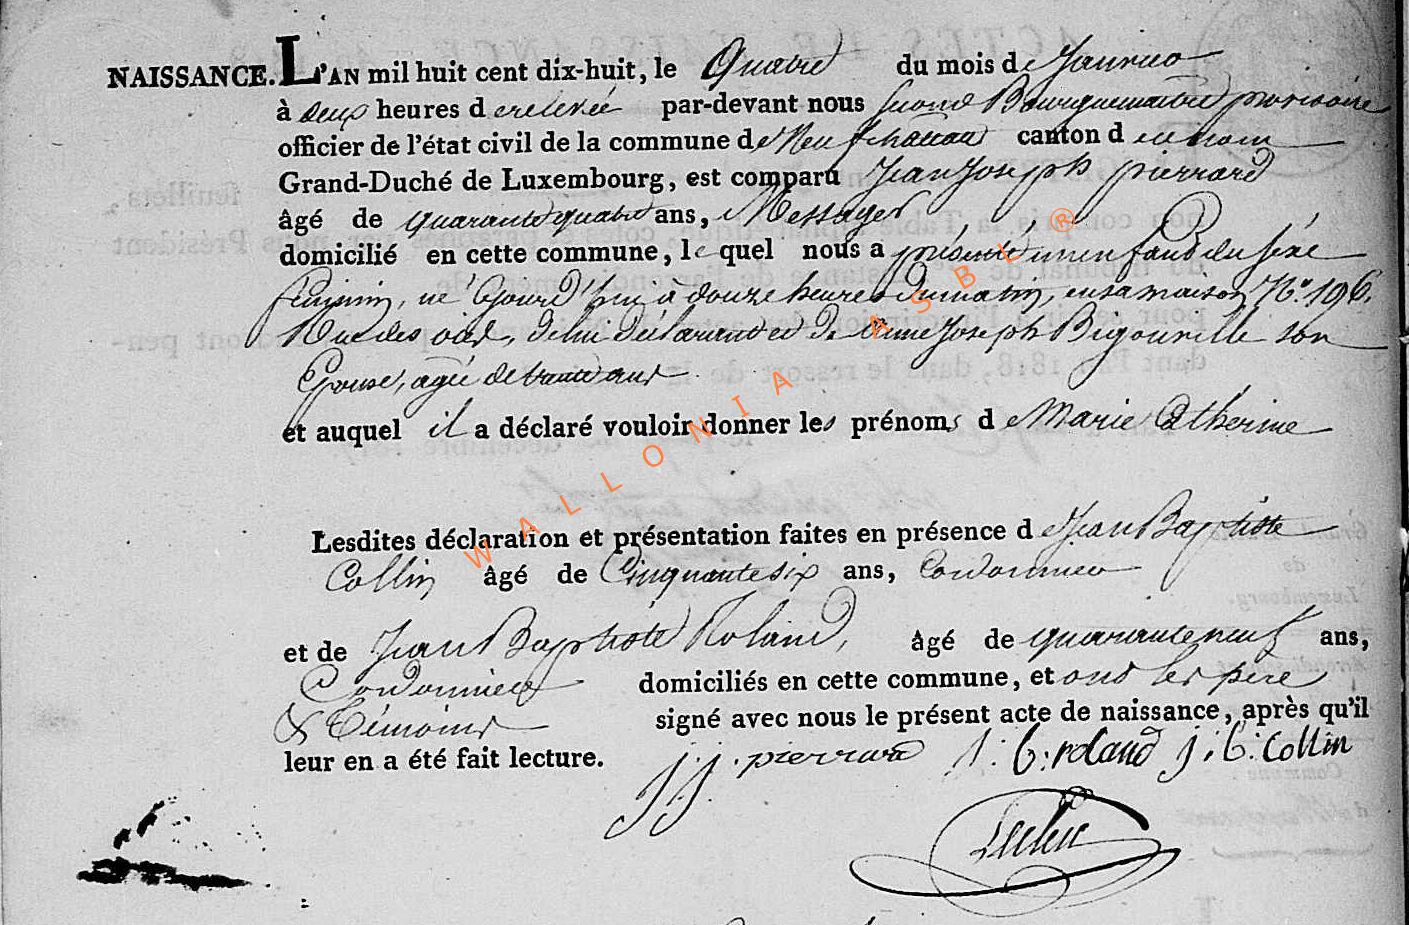 NAISSANCE. L'AN mil huit cent dix-huit, le Quatre du mois de Janvier
à deux heures de relevée par-devant nous second Bourguemaitre provisoire
officier de l'état civil de la commune de Neufchateau canton de ce nom
Grand-Duché de Luxembourg, est comparu Jean Joseph pierrard
âgé de quarante quatre ans, Messager
domicilié en cette commune, lequel nous a présenté un enfant du sexe
feminin, né cejourd'hui à douze heures du matin, en sa maison No. 196.
Rue des de lui déclarant et de anne Joseph Bigonville son
Epouse, agée de trente ans
et auquel il a déclaré vouloir donner les prénoms de Marie Catherine
Lesdites déclaration et présentation faites en présence de Jean Baptiste
Collin âgé de Cinquante six ans, Cordonnier
et de Jean Baptiste Roland, âgé de quarante neuf ans,
Cordonnier domiciliés en cette commune, et ont les père
& témoins signé avec nous le présent acte de naissance, après qu'il
leur en a été fait lecture. j j. pierrard j: b: roland j: b: Collin
WALLONIA ASBL ®